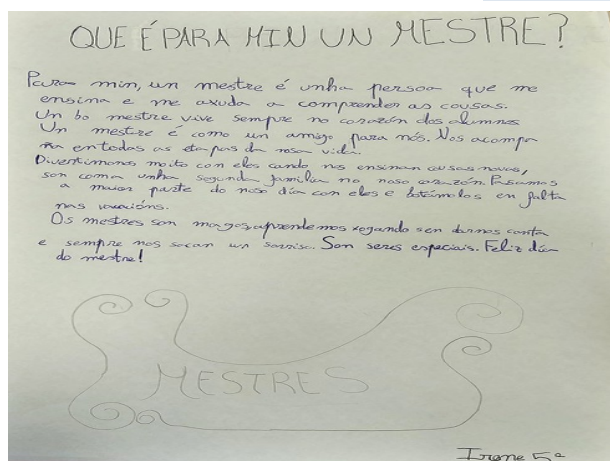 QUE É PARA MIN UN MESTRE?
Para min, un mestre é unha persoa que me
ensina e me axuda a comprender as cousas.
Un bo mestre vive sempre no corazón dos alumnos
Un mestre é como un amigo para nós. Nos acompa
ña en todas as etapas da nosa vida.
Divertímonos moito con eles cando nos ensinan cousas novas,
son coma unha segunda familia no noso corazón. Pasamos
a maior parte do noso día con eles e botámolos en falta
nas vacacións.
Os mestres son magos, aprendemos xogando sen darnos conta
e sempre nos sacan un sorriso. Son seres especiais. Feliz día
do mestre!
MESTRES
Irene 5º